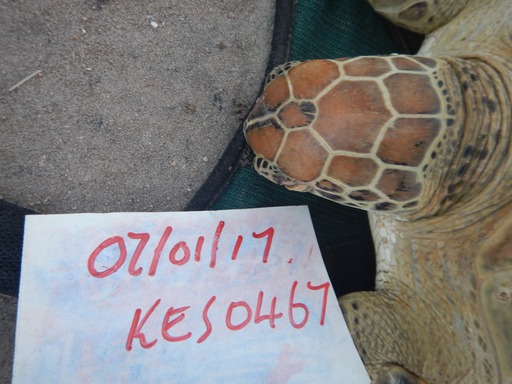 07/01/17.
KES0467